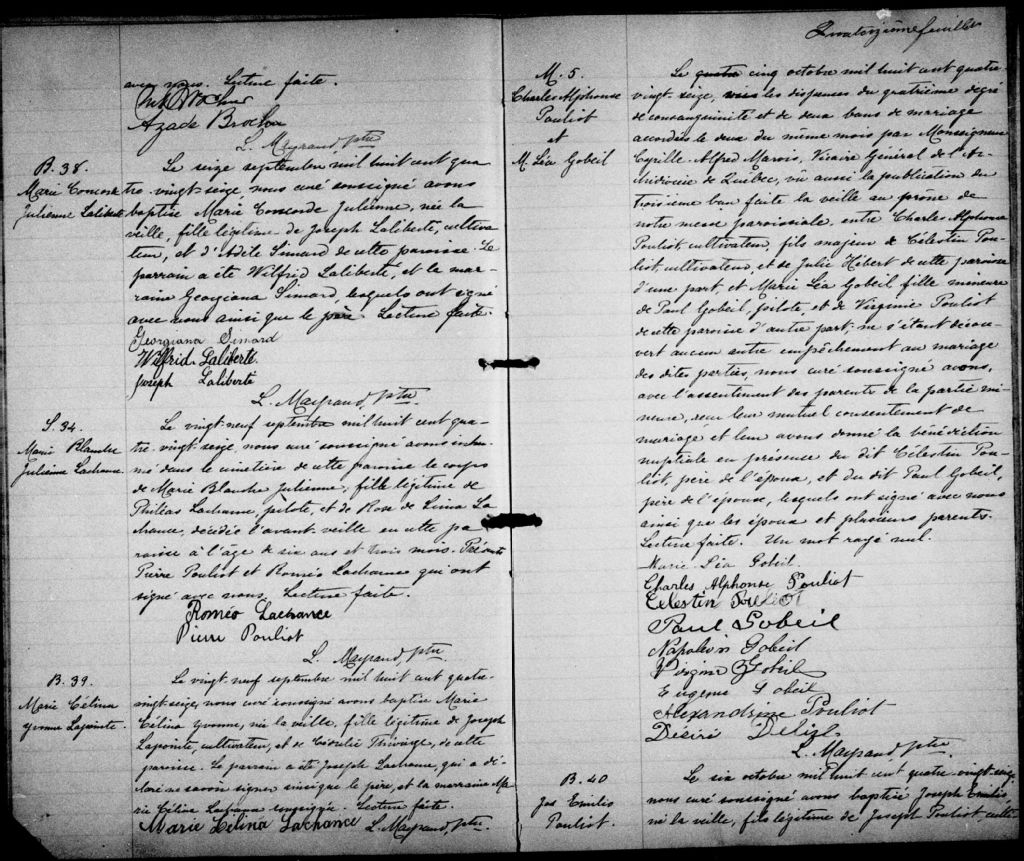 avec nous. Lecture faite.
Azade Brochu
L. Mayrand, ptre
B. 38.
Marie Concorde
Julienne Laliberté
Le seize septembre mil huit cent qua
tre-vingt-seize nous curé soussigné avons
baptisé Marie Concorde Julienne, née la
veille, fille légitime de Joseph Laliberté, cultiva
teur, et d'Adèle Simard de cette paroisse. Le
parrain a été Wilfrid Laliberté, et la mar-
raine Georgiana Simard, lesquels ont signé
avec nous ainsi que le père. Lecture faite.
Georgiana Simard
Wilfrid Laliberté
Joseph Laliberté
L. Mayrand, ptre
S. 34.
Marie Blanche
Julienne Lachance.
Le vingt-neuf septembre mil huit cent qua-
tre-vingt-seize, nous curé soussigné avons inhu-
mé dans le cimetière de cette paroisse le corps
de Marie Blanche Julienne, fille légitime de
Philéas Lachance, pilote, et de Rose de Lima La
chance, décédée l'avant-veille en cette pa
roisse à l'âge de six ans et trois mois. Présents
Pierre Pouliot et Roméo Lachance qui ont
signé avec nous. Lecture faite.
Roméo Lachance
Pierre Pouliot
L. Mayrand, ptre
B. 39.
Marie Célina
Yvonne Lapointe.
Le vingt-neuf septembre mil huit cent quatre-
vingt-seize, nous curé soussigné avons baptisé Marie
Célina Yvonne, née la veille, fille légitime de Joseph
Lapointe, cultivateur, et de Cédulie Thivierge, de cette
paroisse. Le parrain a été Joseph Lachance, qui a dé-
claré ne savoir signer ainsi que le père, et la marraine Ma
rie Célina Lachance soussignée. Lecture faite.
Marie Celina Lachance L. Mayrand, ptre
Quatorzième feuillet
M. 5.
Charles Alphonse
Pouliot
et
M. Léa Gobeil
Le quatre cinq octobre mil huit cent quatre-
vingt-seize, vu les dispenses du quatrième degré
de consanguinité et de deux bans de mariage
accordés le deux du même mois par Monseigneur
Cyrille Alfred Marois, Vicaire Général de l'Ar-
chidiocèse de Québec, vu aussi la publication du
troisième ban faite la veille au prône de
notre messe paroissiale entre Charles Alphonse
Pouliot, cultivateur, fils majeur de Célestin Pou-
liot, cultivateur, et de Julie Hébert de cette paroisse
d'une part et Marie Léa Gobeil fille mineure
de Paul Gobeil, pilote, et de Virginie Pouliot
de cette paroisse d'autre part; ne s'étant décou-
vert aucun autre empêchement au mariage
des dites parties, nous curé soussigné avons,
avec l'assentiment des parents de la partie mi-
neure, reçu leur mutuel consentement de
mariage et leur avons donné la bénédiction
nuptiale en présence du dit Célestin Pou-
liot, père de l'époux, et du dit Paul Gobeil,
père de l'épouse, lesquels ont signé avec nous
ainsi que les époux et plusieurs parents.
Lecture faite. Un mot rayé nul.
Marie-Léa Gobeil.
Charles Alphonse Pouliot
Celestin Pouliot
Paul Gobeil
Napoléon Gobeil
Virginie Gobeil
Eugène Gobeil
Alexandrine Pouliot
Désiré Delisle
L. Mayrand, ptre
B. 40
Jos Emilio
Pouliot.
Le six octobre mil huit cent quatre-vingt-seize
nous curé soussigné avons baptisé Joseph Emilio
né la veille, fils légitime de Joseph Pouliot, culti-